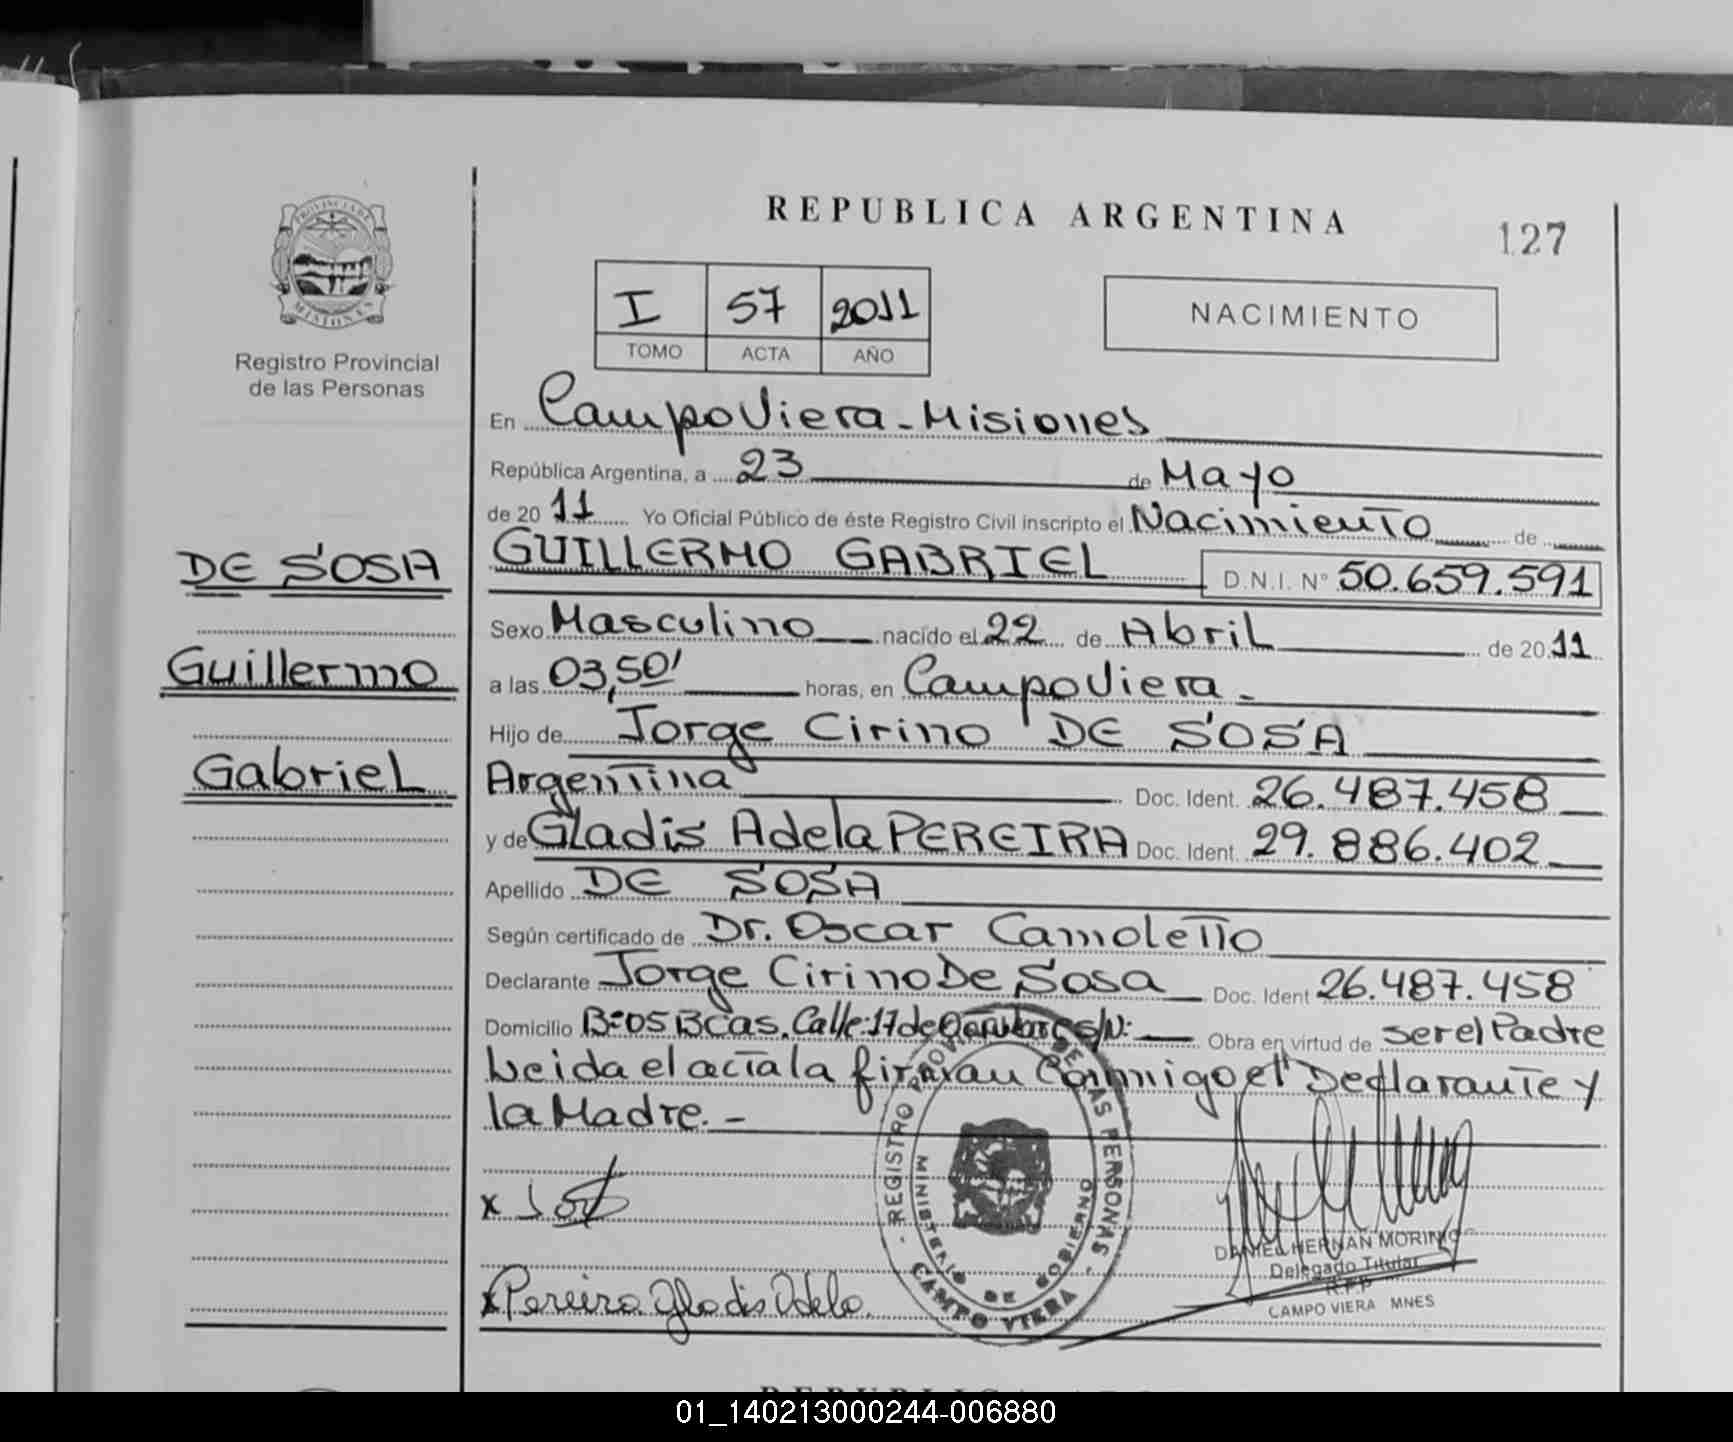 REPUBLICA ARGENTINA
127
PROVINCIA DE
MISIONES
Registro Provincial
de las Personas
I 57 2011
TOMO ACTA AÑO
NACIMIENTO
En Campo Viera - Misiones
República Argentina, a 23 de Mayo
de 2011 Yo Oficial Público de éste Registro Civil inscripto el Nacimiento de
GUILLERMO GABRIEL D.N.I. N° 50.659.591
DE SOSA
Guillermo
Gabriel
Sexo Masculino nacido el 22 de Abril de 2011
a las 03,50' horas, en Campo Viera -
Hijo de Jorge Cirino DE SOSA
Argentina Doc. Ident. 26.487.458
y de Gladis Adela PEREIRA Doc. Ident. 29.886.402
Apellido DE SOSA
Según certificado de Dr. Oscar Camoletto
Declarante Jorge Cirino De Sosa Doc. Ident 26.487.458
Domicilio B=05 Bcas. Calle:17 de Octubre S/N: Obra en virtud de ser el Padre
Leida el acta la firman Conmigo el Declarante y
la Madre. -
x
x Pereira Gladis Adela.
- REGISTRO PROVINCIAL DE LAS PERSONAS -
MINISTERIO DE GOBIERNO
CAMPO VIERA
DANIEL HERNAN MORINIGO
Delegado Titular
R.P.P
CAMPO VIERA MNES
01_140213000244-006880